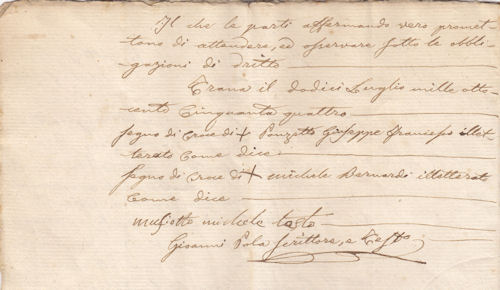 Il che le parti affermando vero promet-
tono di attendere, ed osservare sotto le obbli-
gazioni di dritto
Trana il dodici Luglio mille otto-
cento Cinquanta quattro
Segno di Croce di + Ponzetto Giuseppe Francesco illet-
terato come dice
Segno di Croce di + Michele Bernardi illetterato
come dice
Musotto Michele testo
Giovanni Pola Scrittore, e Testo